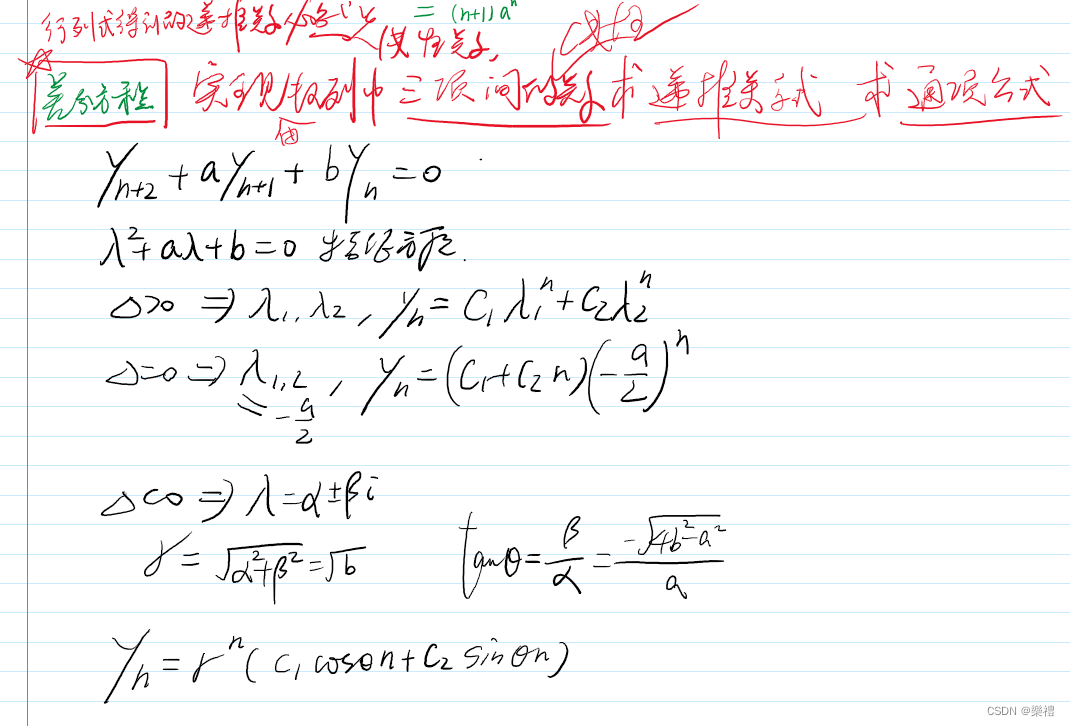 = (n+1)aⁿ
行列式得到的递推关系
差分方程 实现数列中三项间的关系求递推关系式 求通项公式
Yn+2 + aYn+1 + bYn = 0
λ²+aλ+b=0 特征方程.
Δ>0 ⇒ λ1, λ2, yn = C1λ1ⁿ+C2λ2ⁿ
Δ=0 ⇒ λ1,2 = -a/2, yn = (C1+C2n)(-a/2)ⁿ
Δ<0 ⇒ λ=α±βi
r = √(α²+β²) = √b tanθ = β/α = -√(4b²-a²)/a
yn = rⁿ(C1cosθn+C2sinθn)
CSDN @樂禮